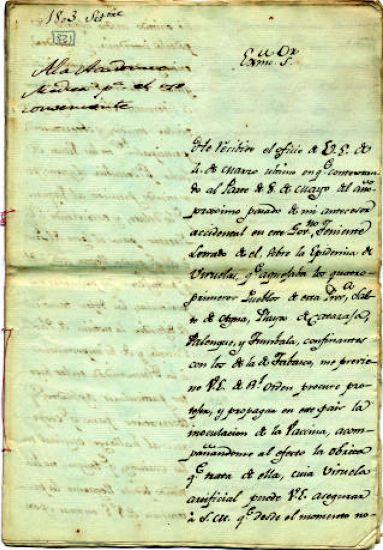 1803 Setre
182
A la Academia
Medica pa el uso
conveniente
Exmo. Sor.
He recibido el oficio de V.E. de
4. de Marzo ultimo en q. contextan-
do al Parte de 8. de Mayo del año
proximo pasado de mi antecesor
accidental en este Gorno. Teniente
Letrado de el, sobre la Epidemia de
Viruelas, q. aquejaba los quatro
primeros Pueblos de esta Proa. Sal-
to de Agua, Playa de Catasaja,
Palenque, y Tumbala, confinantes
con los de la de Tabasco, me previe-
ne V.E. de Rl. Orden procure pro-
teger, y propagar en este pais la
inoculacion de la Vaccina, acom-
pañandome al efecto la obrita
q. trata de ella, cuia viruela
artificial puede V.E. asegurar
à S.M. q. desde el momento no-